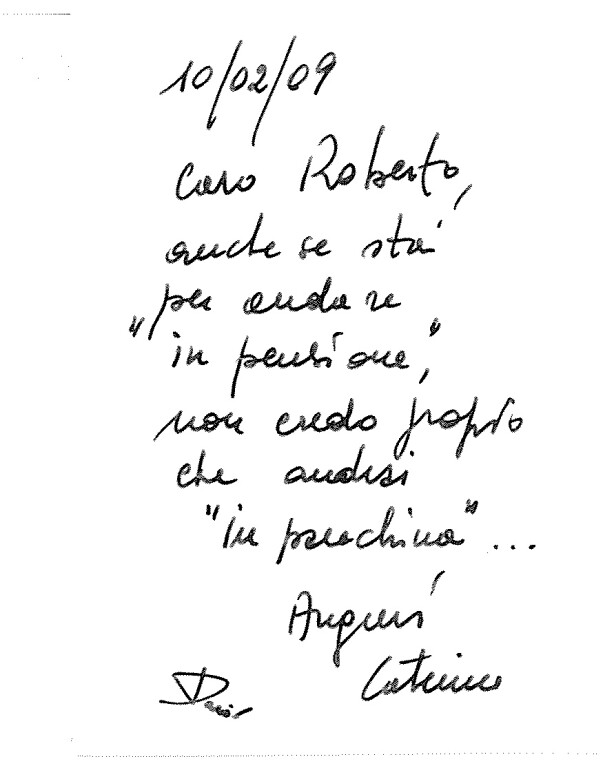 10/02/09
Caro Roberto,
anche se stai
per andare
"in pensione",
non credo proprio
che andrai
"in panchina"...
Auguri
Caterina